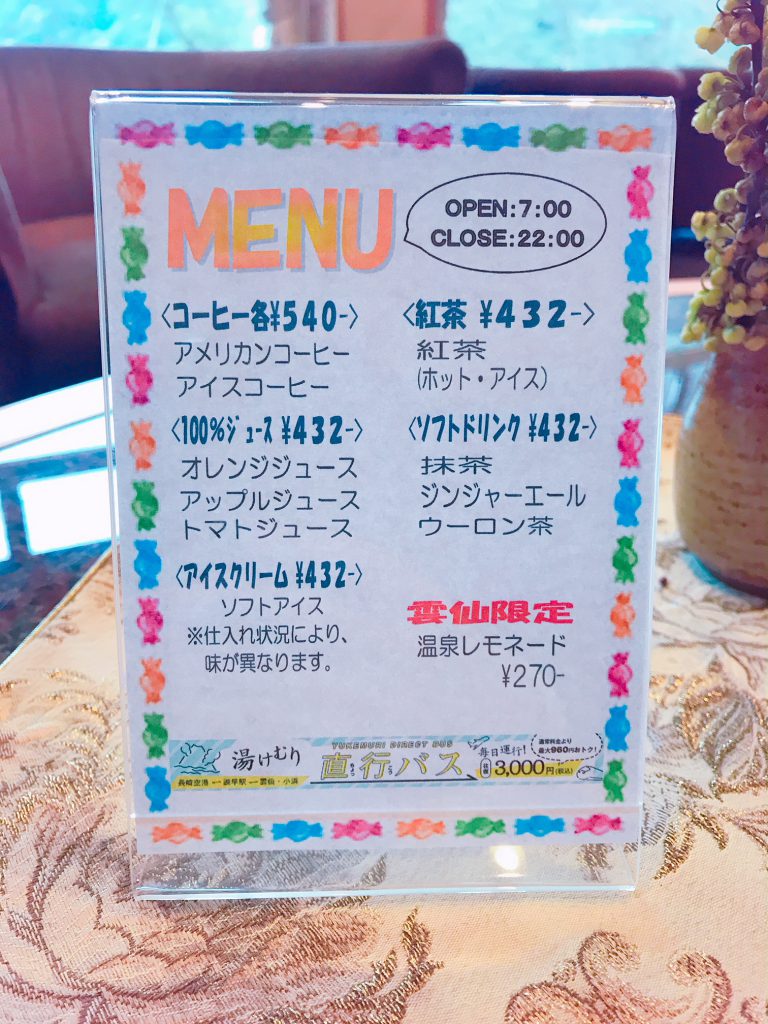 MENU
OPEN:7:00
CLOSE:22:00
〈コーヒー各¥540-〉
アメリカンコーヒー
アイスコーヒー
〈100%ジュース ¥432-〉
オレンジジュース
アップルジュース
トマトジュース
〈アイスクリーム ¥432-〉
ソフトアイス
※仕入れ状況により、
味が異なります。
〈紅茶 ¥432-〉
紅茶
(ホット・アイス)
〈ソフトドリンク ¥432-〉
抹茶
ジンジャーエール
ウーロン茶
雲仙限定
温泉レモネード
¥270-
湯けむり
長崎空港 ー 諫早駅 ー 雲仙・小浜
YUKEMURI DIRECT BUS
直行バス
ちょっ こう
毎日運行!
往復 3,000円(税込)
通常料金より
最大960円おトク!